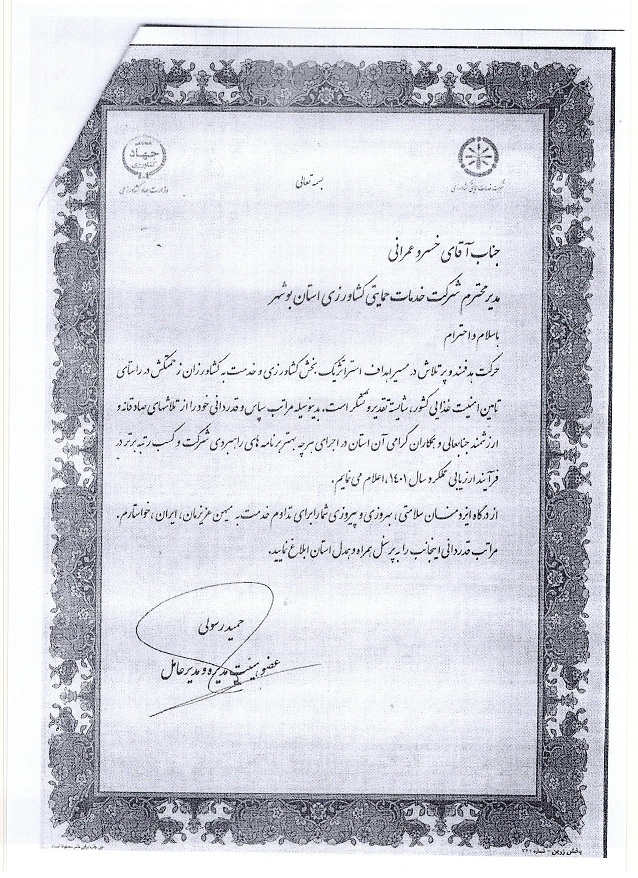 بسمه تعالی
جهاد
کشاورزی
وزارت جهاد کشاورزی
شرکت خدمات حمایتی کشاورزی
جناب آقای خسرو عمرانی
مدیر محترم شرکت خدمات حمایتی کشاورزی استان بوشهر
باسلام و احترام
حرکت هدفمند و پر تلاش در مسیر اهداف استراتژیک بخش کشاورزی و خدمت به کشاورزان زحمتکش در راستای
تامین امنیت غذایی کشور، شایسته تقدیر و تشکر است. بدینوسیله مراتب سپاس و قدردانی خود را از تلاشهای صادقانه و
ارزشمند جنابعالی و همکاران گرامی آن استان در اجرای هرچه بهتر برنامه های راهبردی شرکت و کسب رتبه برتر در
فرآیند ارزیابی عملکرد سال ۱۴۰۱، اعلام می نمایم.
از درگاه ایزد منان سلامتی، بهروزی و پیروزی شما را برای تداوم خدمت به میهن عزیزمان، ایران، خواستارم.
مراتب قدردانی اینجانب را به پرسنل همراه و همدل استان ابلاغ نمایید.
حمید رسولی
عضو هیئت مدیره و مدیرعامل